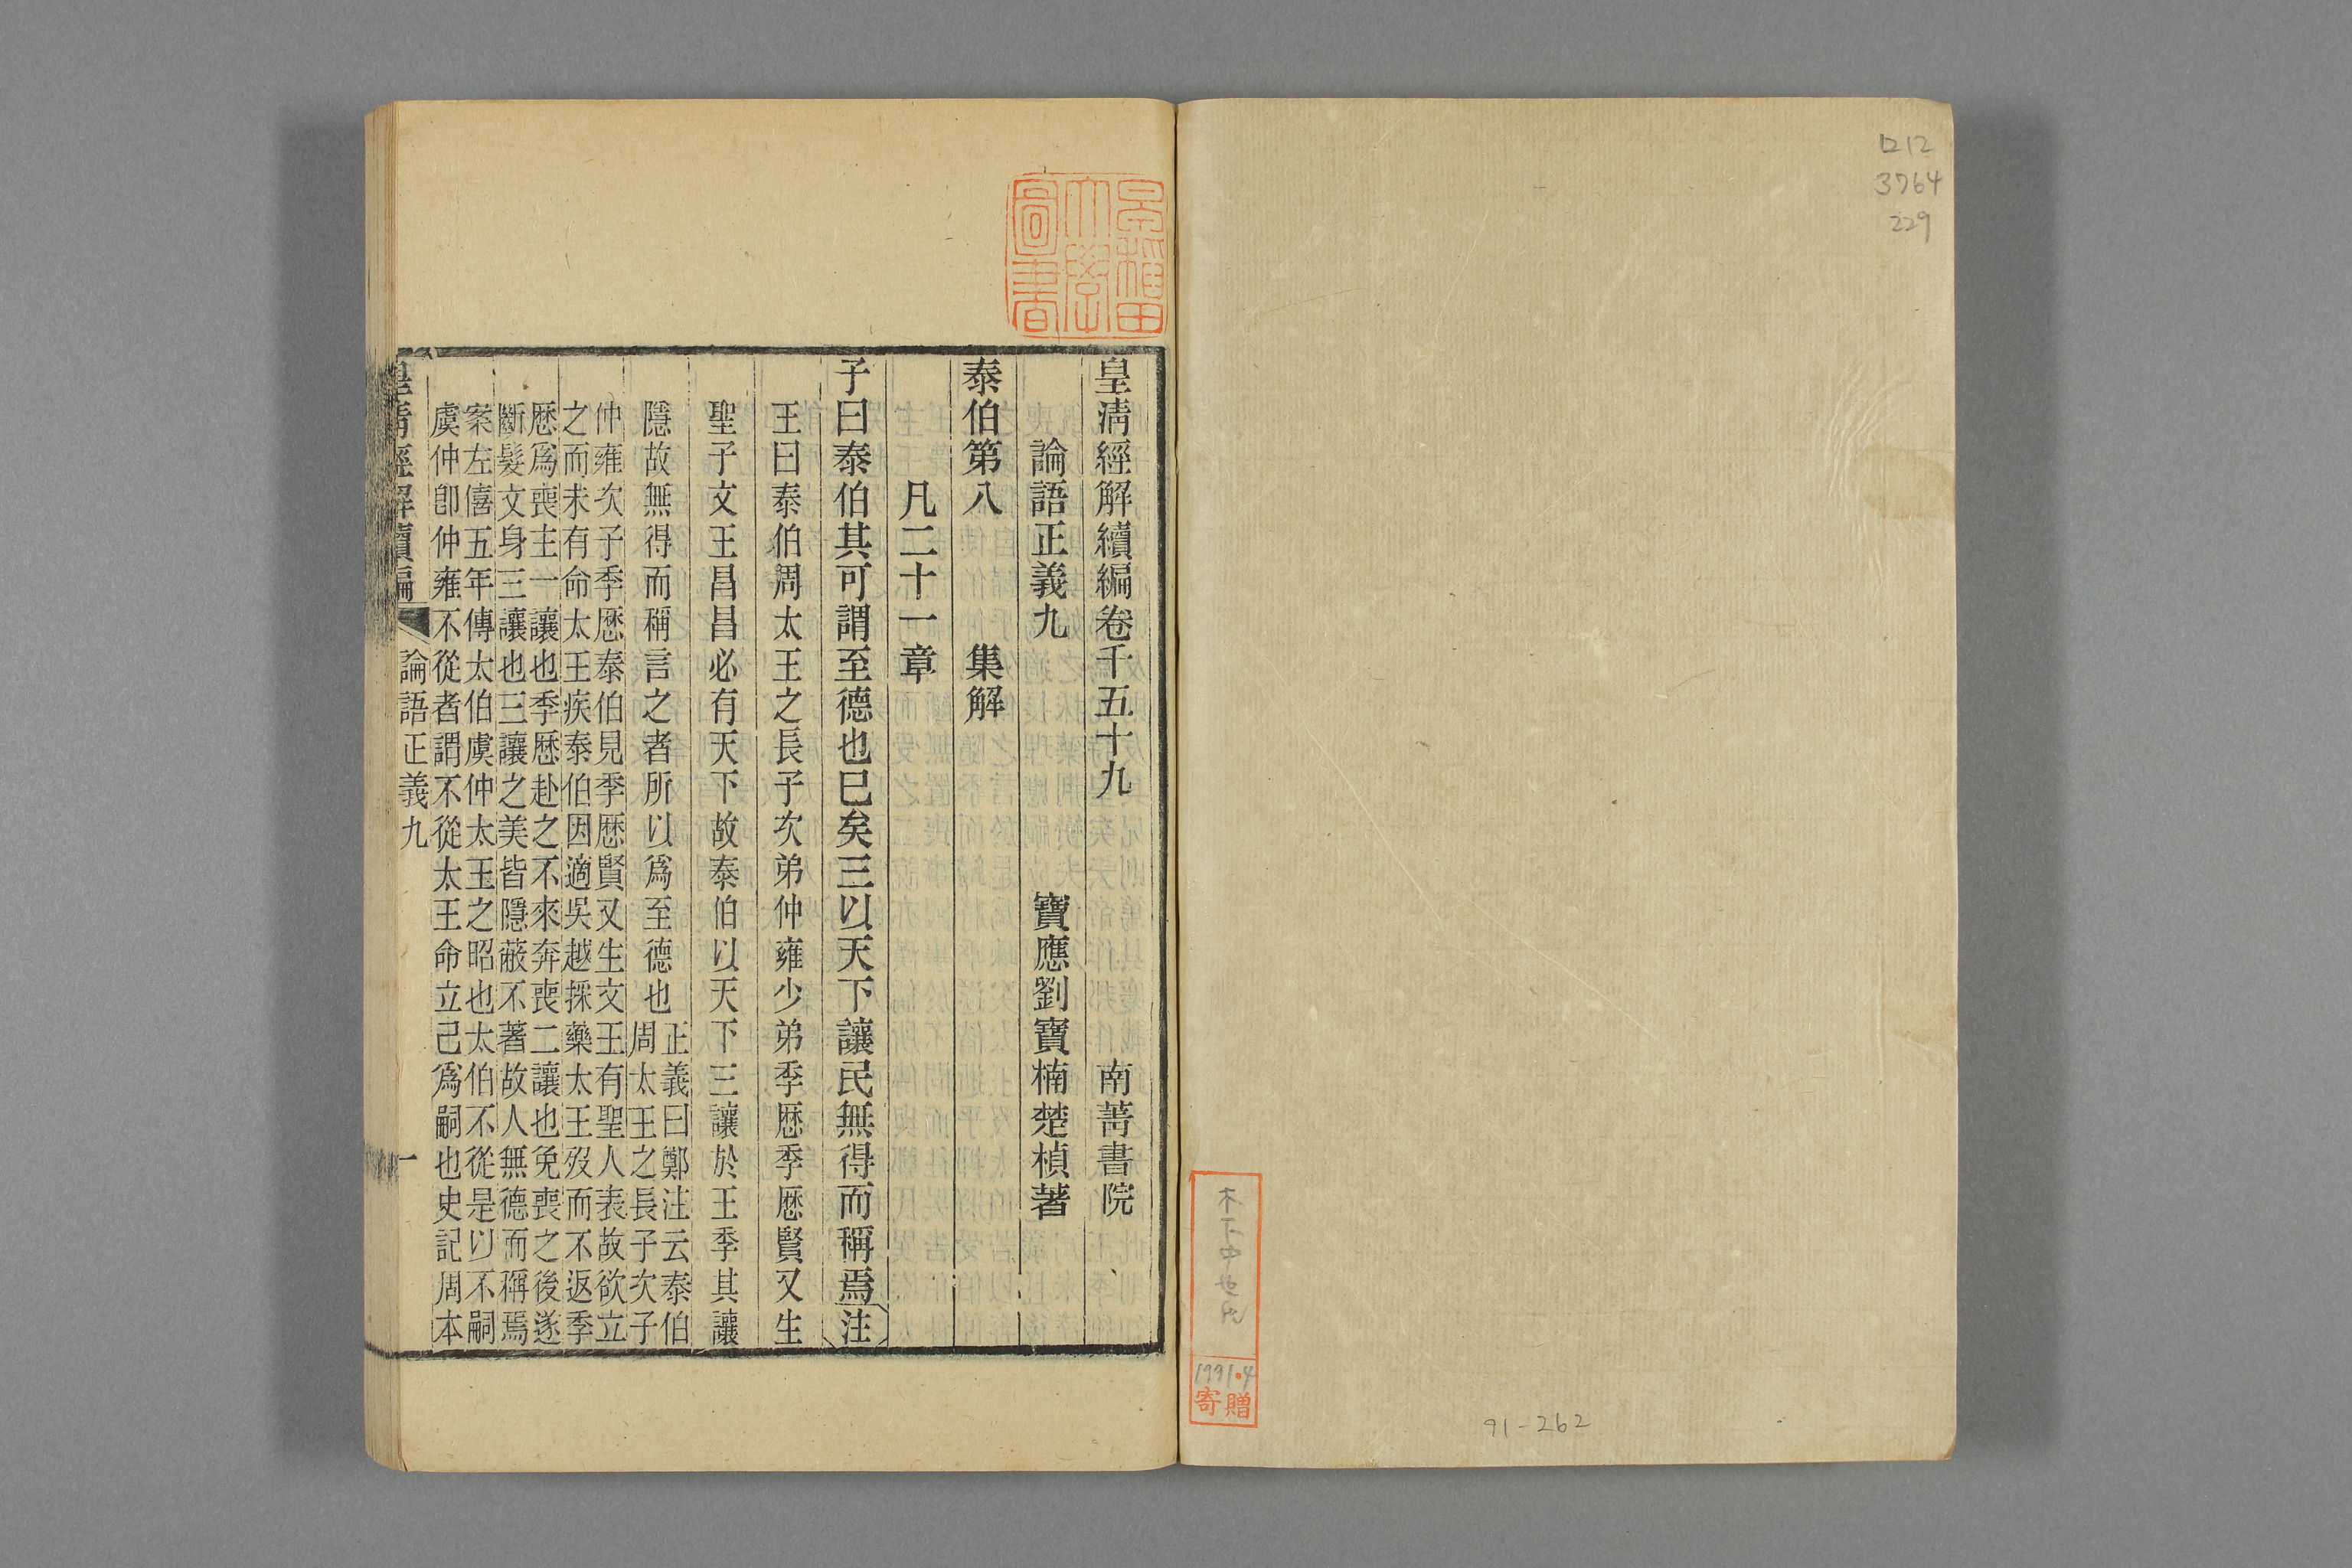 ロ12
3764
229
木下
1991.4
寄贈
91-262
早稲田
大學
圖書
皇清經解續編卷千五十九 南菁書院
論語正義九 寶應劉寶楠楚楨著
泰伯第八 集解
凡二十一章
子曰泰伯其可謂至德也已矣三以天下讓民無得而稱焉注
王曰泰伯周太王之長子次弟仲雍少弟季歷季歷賢又生
聖子文王昌昌必有天下故泰伯以天下三讓於王季其讓
隱故無得而稱言之者所以爲至德也
正義曰鄭注云泰伯
周太王之長子次子
仲雍次子季歷泰伯見季歷賢又生文王有聖人表故欲立
之而未有命太王疾泰伯因適吳越採藥太王歿而不返季
歷爲喪主一讓也季歷赴之不來奔喪二讓也免喪之後遂
斷髮文身三讓也三讓之美皆隱蔽不著故人無德而稱焉
案左僖五年傳太伯虞仲太王之昭也太伯不從是以不嗣
虞仲卽仲雍不從者謂不從太王命立己爲嗣也史記周本
皇清經解續編 論語正義九 一